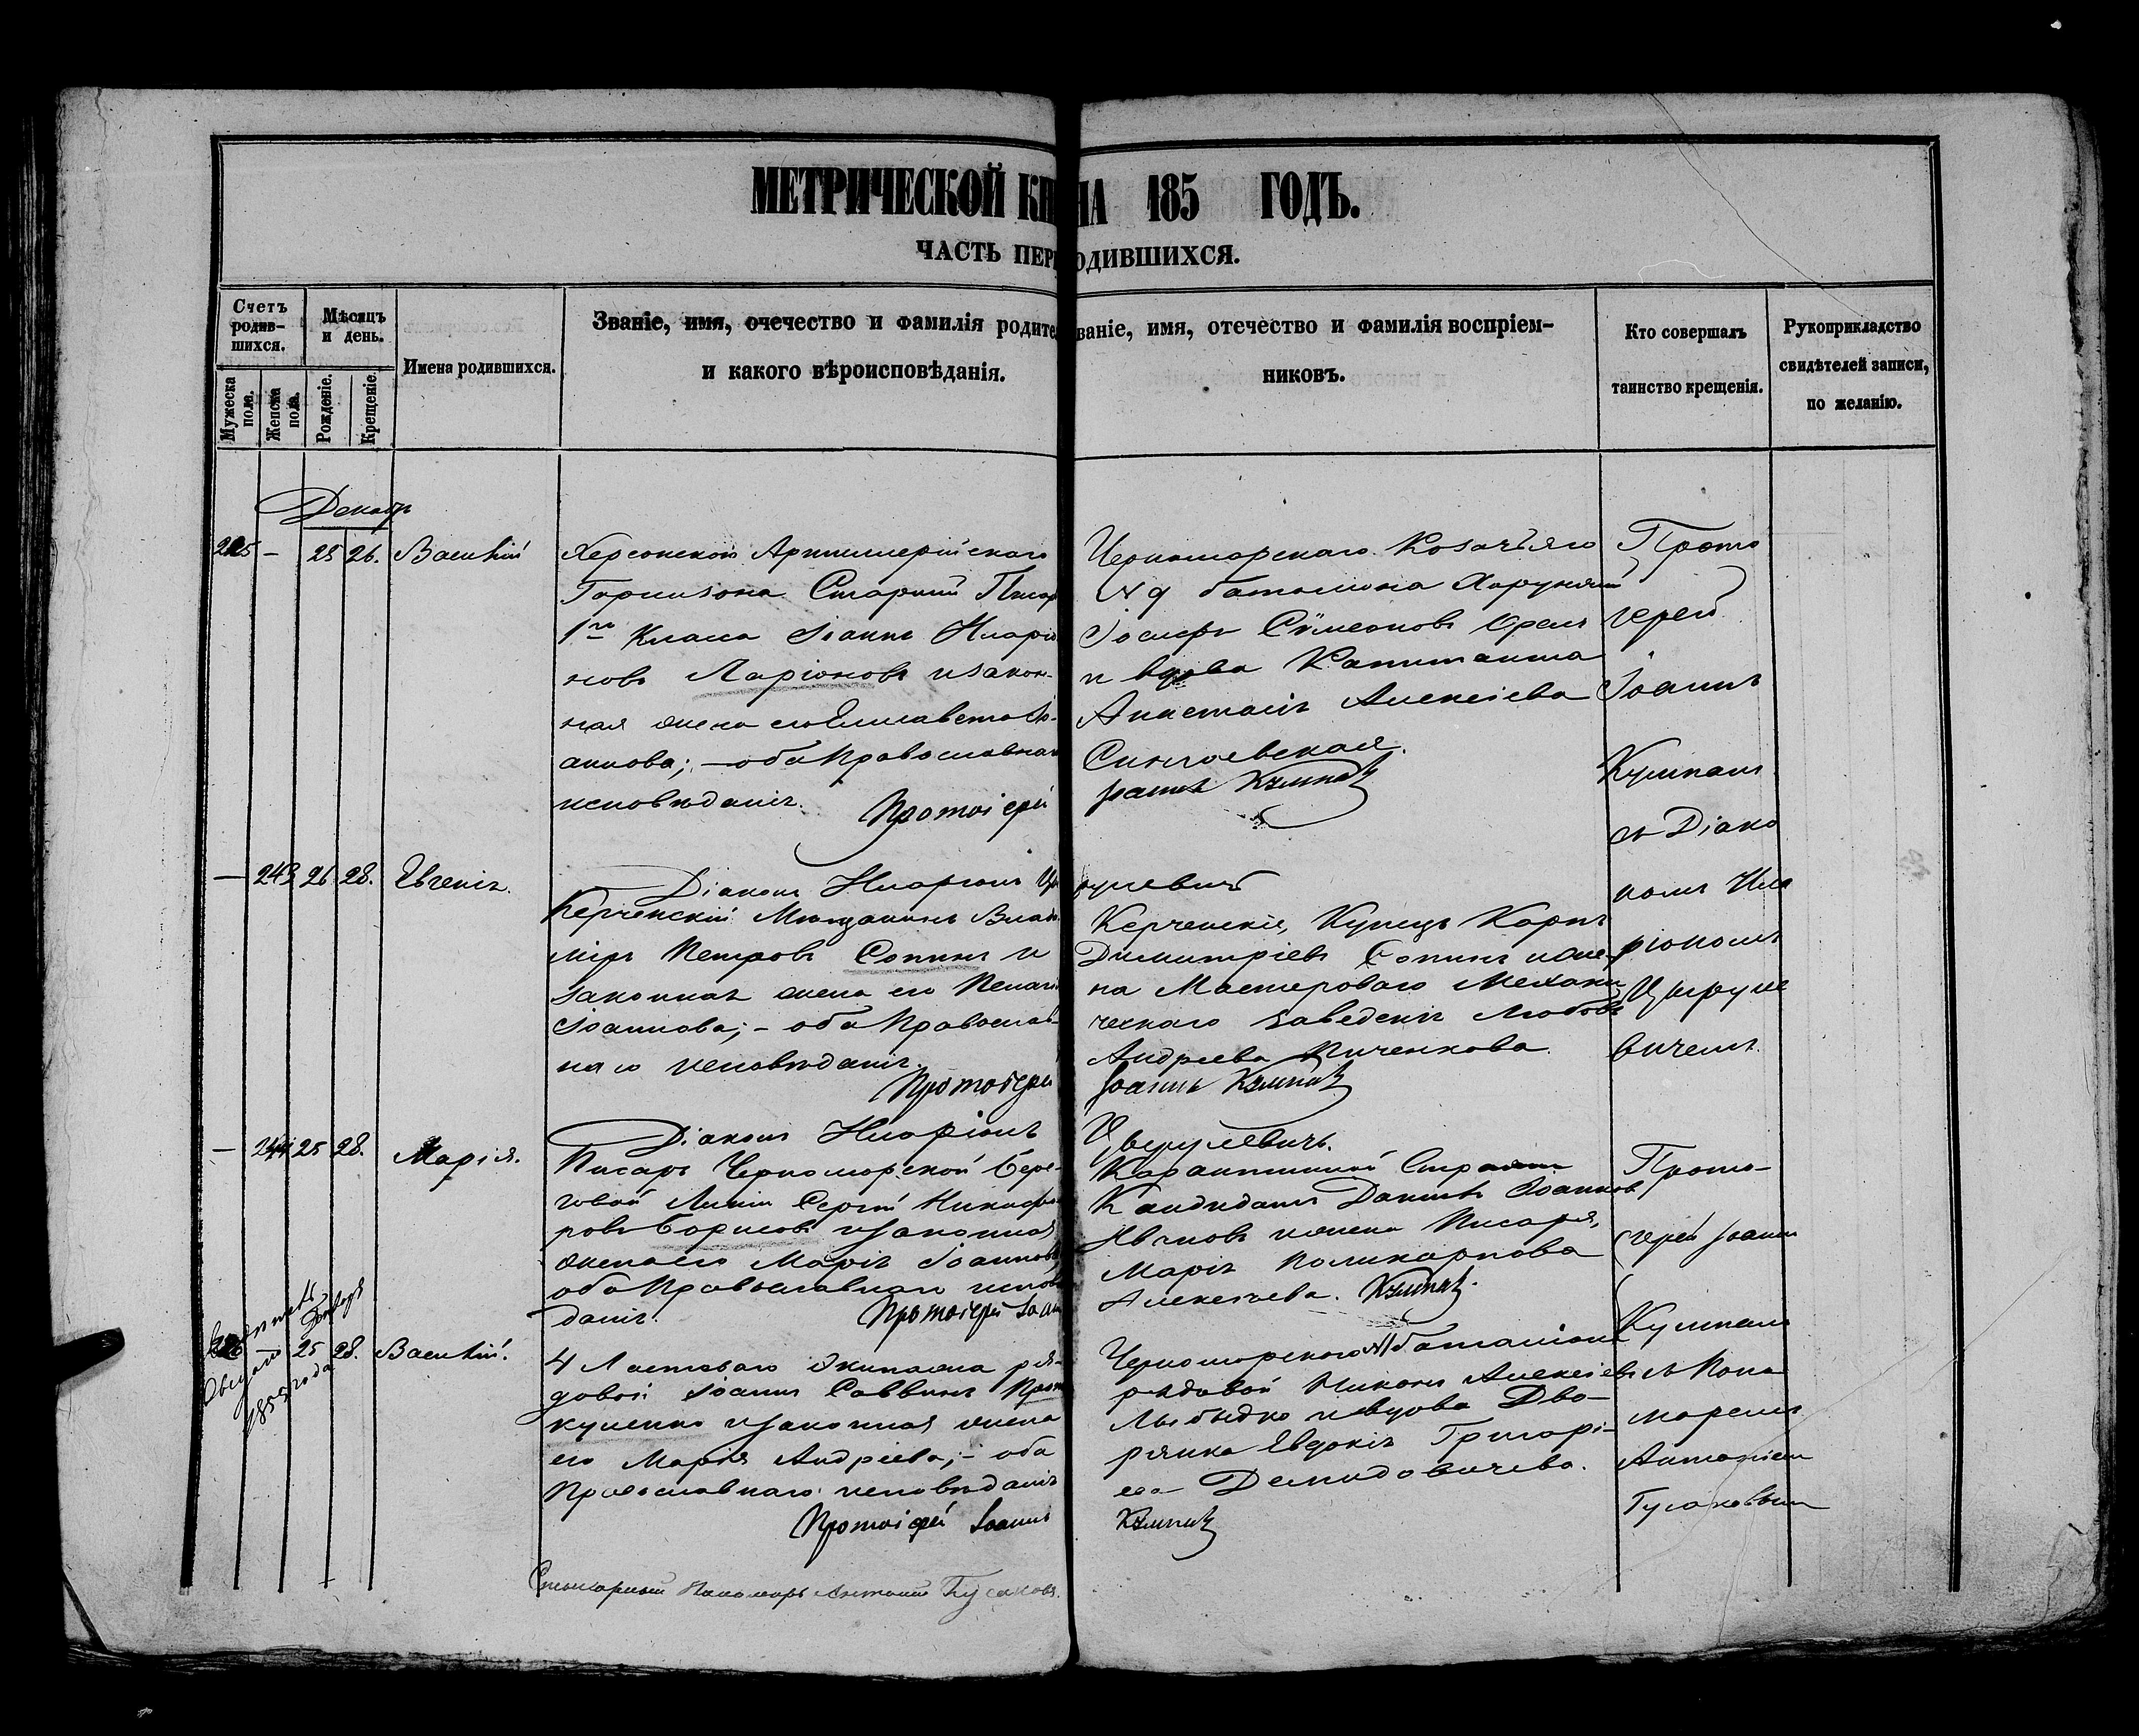 МЕТРИЧЕСКОЙ КН НА 185 ГОДЪ.
ЧАСТЬ ПЕР ОДИВШИХСЯ.
Счетъ родив-шихся.
Мужеска пола.
Женска пола.
Мѣсяцъ и день.
Рожденіе.
Крещеніе.
Имена родившихся.
Званіе, имя, очечество и фамилія родите
и какого вѣроисповѣданія.
ваніе, имя, отечество и фамилія воспріем-
никовъ.
Кто совершалъ
таинство крещенія.
Рукоприкладство
свидѣтелей записи,
по желанію.
Декабр
225 — 25 26. Василій
Херсонской Артиллерійскаго
Гарнизона Старшій Писар
1го Класса Іоаннъ Иларіо
новъ Ларіоновъ и закон-
ная жена его Елисавета Іо-
аннова; — оба Православнаго
исповѣданія.
Протоіерей
Черноморскаго Козачьяго
№ 9 баталіона Хорунжій
Іосифъ Сѵмеоновъ
и вдова Капитанша
Анастасія Алексіева
Іоаннъ
Прото
іерей
Іоаннъ
съ Діако
номъ Ила
ріономъ
вичемъ.
— 243 26 28. Евгенія.
Діаконъ Иларіонъ
Керченскій Мѣщанинъ Влади
міръ Петровъ Сопинъ и
законная жена его Пелагі
Іоаннова; — оба Православ-
наго исповѣданія.
Протоіерей
Керченскіе, Купецъ Карпъ
Димитріевъ Сопинъ и же-
на Мастероваго Механи
ческаго Заведенія Любовь
Андреева
Іоаннъ
— 244 25 28. Марія.
Діаконъ Иларіонъ
Писарь Черноморской Бере-
говой Линіи Сергій Никифо
ровъ Борисовъ и законная
жена его Марія Іоаннова
оба Православнаго исповѣ
данія.
Протоіерей Іоан
Карантинной Стражи
Кандидатъ Даніилъ Іоанновъ
и жена Писаря,
Марія Поликарпова
Алексѣева.
Прото-
іерей Іоанн
25 28. Василій.
1855 года
4 Ластоваго Экипажа ря-
довой Іоаннъ Саввинъ Про
куленко и законная жена
его Марія Андреева; — оба
Православнаго исповѣданія
Протоіерей Іоаннъ
Черноморскаго баталіона
рядовой Никонъ Алексіевъ
и вдова Дво-
рянка Евдокія Григорі-
ева Демидовичева.
съ Поно
маремъ
Антоніем
Гусаковым
Пономарь Антоній Гусаковъ.